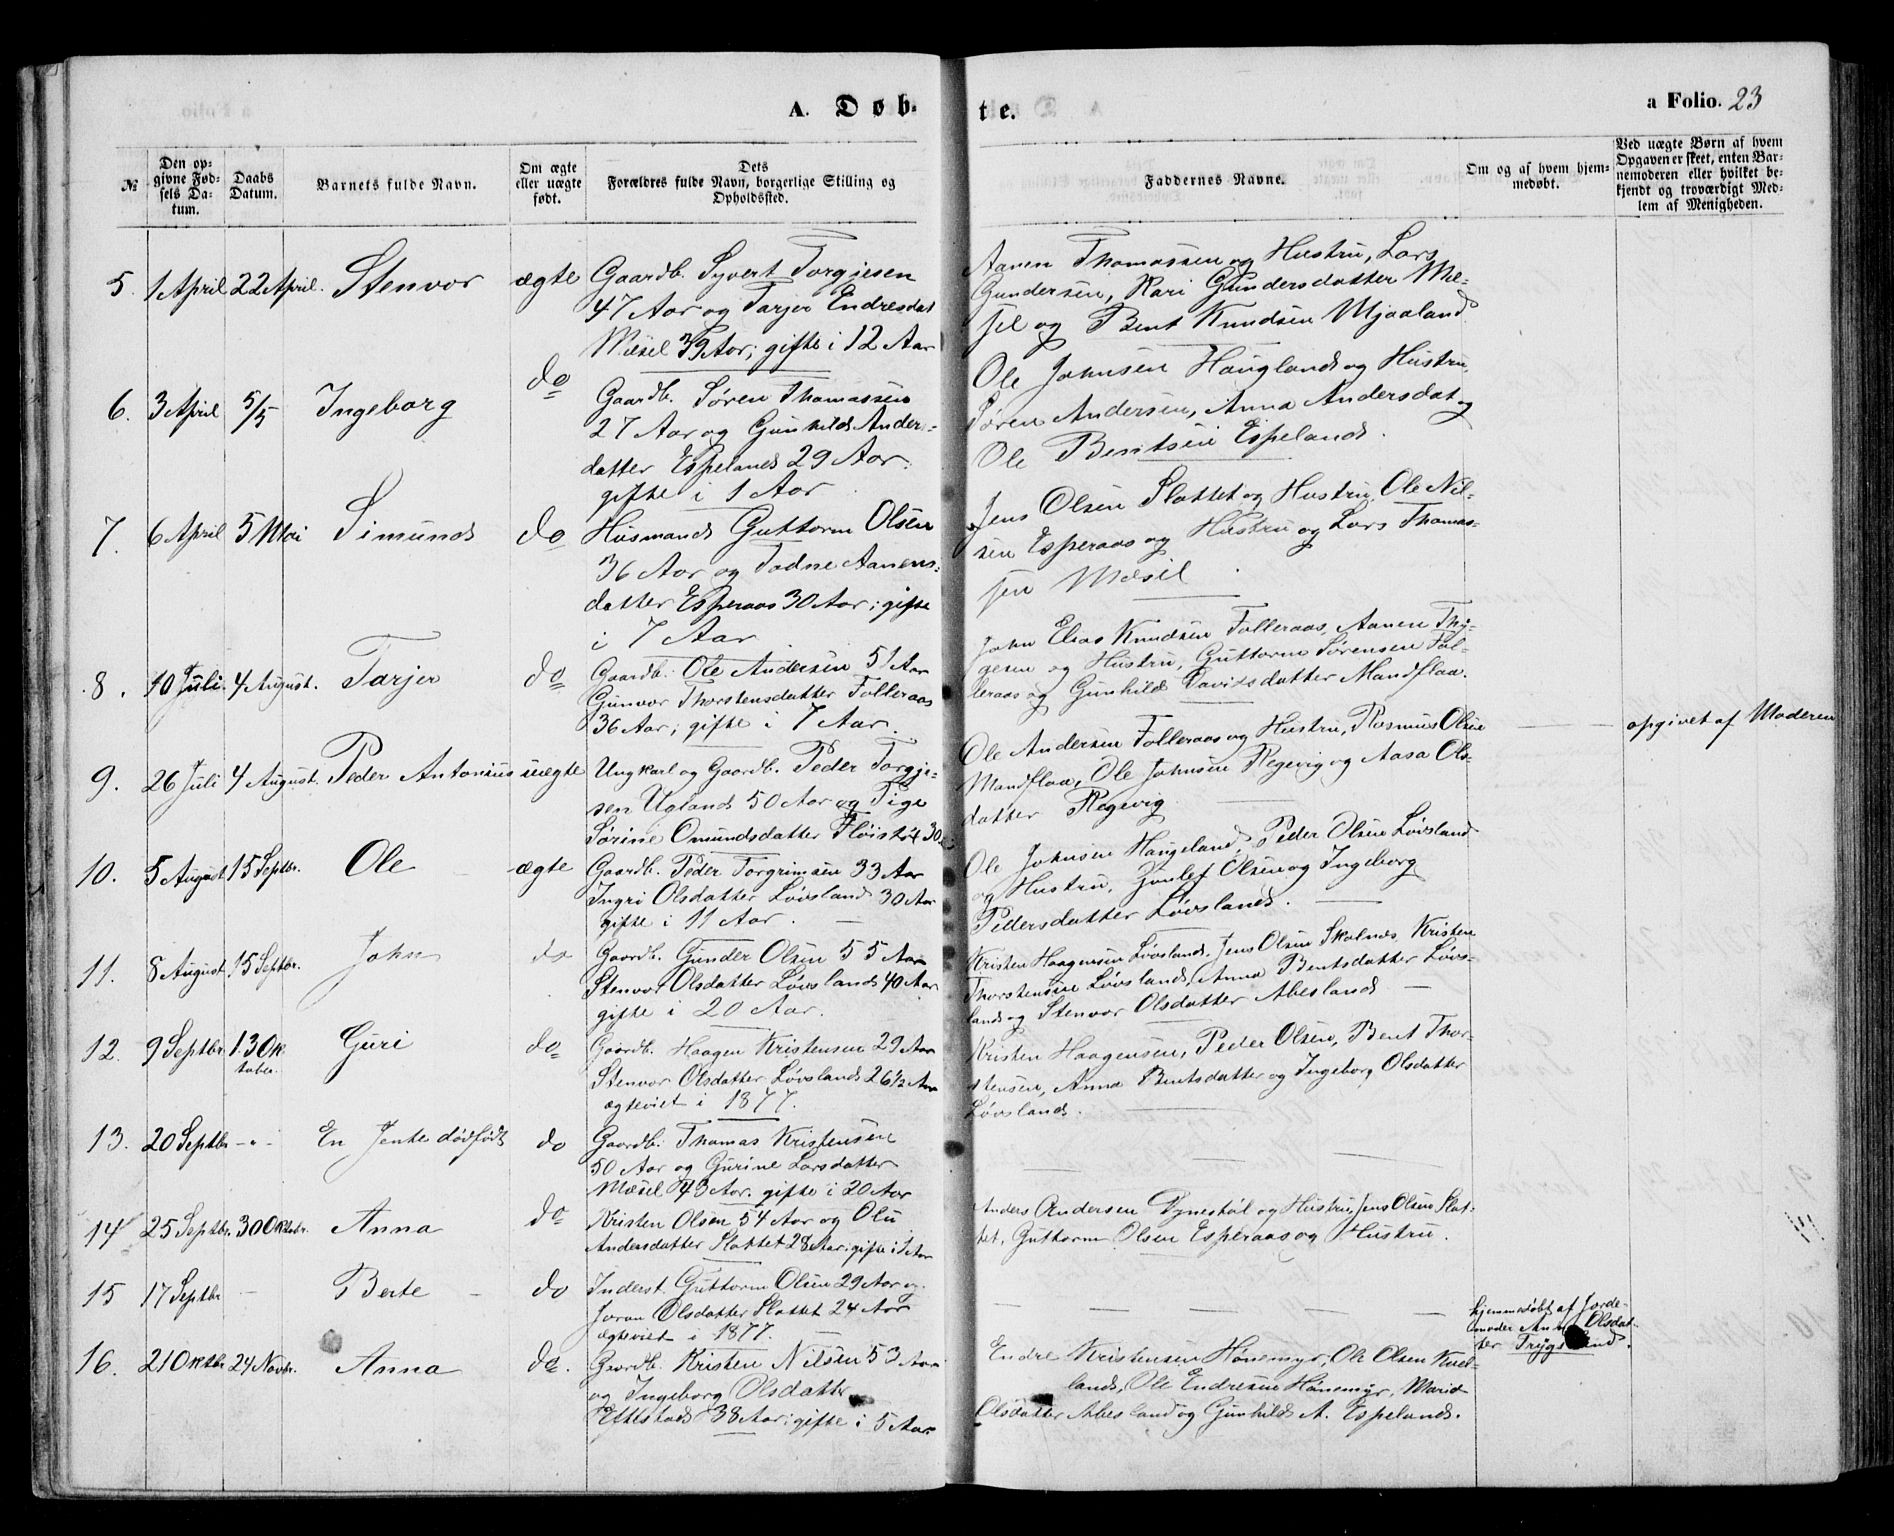 A. Døb-
te.
a Folio. 23
№
Den op-
givne Fød-
sels Da-
tum.
Daabs
Datum.
Barnets fulde Navn.
Om ægte
eller uægte
født.
Dets
Forældres fulde Navn, borgerlige Stilling og
Opholdssted.
Faddernes Navne.
Om og af hvem hjem-
medøbt.
Ved uægte Børn af hvem
Opgaven er skeet, enten Bar-
nemoderen eller hvilket be-
kjendt og troværdigt Med-
lem af Menigheden.
5. 1 April 22 April. Stenvor ægte
Gaardb. Syvert Torgjesen
47 Aar og Tarjer Endresdat
Mæsel 39 Aar; gifte i 12 Aar
Aanen Thomassen og Hustru, Lars
Gundersen, Kari Gundersdatter Mæ-
sel og Bent Knudsen Mjaaland
6. 3 April 5/5 Ingeborg do
Gaardb. Søren Thomassen
27 Aar og Gunhild Ander-
datter Espeland 29 Aar.
gifte i 1 Aar
Ole Johnsen Haugland og Hustru
Søren Andersen, Anna Andersdat og
Ole Bentsen Espeland.
7. 6 April 5 Mai Simund do
Husmand Guttorm Olsen
36 Aar og Todne Aanens-
datter Esperaas 30 Aar; gifte
i 7 Aar
Jens Olsen Slottet og Hustru, Ole Nil-
sen Esperaas og Hustru og Lars Thomas-
sen Mæsel.
8. 10 Juli 4 August. Tarjer do
Gaardb. Ole Andersen 51 Aar
Gunvor Thorstensdatter Folleraas
36 Aar; gifte i 7 Aar.
John Elias Knudsen Folleraas, Aanen Thy-
gesen og Hustru, Guttorm Sørensen Fol-
leraas og Gunhild Davidsdatter Mandflaa.
9. 26 Juli 4 August. Peder Antonius uægte
Ungkarl og Gaardb. Peder Torgje-
sen Ugland 50 Aar og Pige
Sørine Omundsdatter 30
Ole Andersen Folleraas og Hustru, Rasmus Olsen
Mandflaa, Ole Johnsen Regevig og Aasa Ols-
datter Regevig
opgivet af Moderen
10. 5 August 15 Septbr. Ole ægte
Gaardb. Peder Torgrimsen 33 Aar
Ingri Olsdatter Løvsland 30 Aar
gifte i 11 Aar.
Ole Johnsen Haugeland, Peder Olsen Løvsland
og Hustru, Olsen og Ingeborg
Pedersdatter Løvsland.
11. 8 August 15 Septbr. John do
Gaardb. Gunder Olsen 55 Aar
Stenvor Olsdatter Løvsland 40 Aar
gifte i 20 Aar.
Kristen Haagensen Løvsland, Jens Olsen Skalnes, Kristen
Thorstensen Løvsland, Anna Bentsdatter Løvs-
land og Stenvor Olsdatter Abesland
12. 9 Septbr. 13 Ok
tober. Guri do
Gaardb. Haagen Kristensen 29 Aar
Stenvor Olsdatter Løvsland 26 1/2 Aar
ægteviet i 1877.
Kristen Haagensen, Peder Olsen, Bent Thor-
stensen, Anna Bentsdatter og Ingeborg Olsdatter
Løvsland.
13. 20 Septbr - " - En Jente dødfødt do
Gaardb. Thomas Kristensen
50 Aar og Gurine Larsdatter
Mæsel 43 Aar. gifte i 20 Aar
14 25 Septbr. 30 Oktobr. Anna do
Kristen Olsen 54 Aar og Olu
Andersdatter Slottet 28 Aar; gifte i 1 Aar
Anders Andersen Dynestøl og Hustru, Jens Olsen Slot-
tet, Guttorm Olsen Esperaas og Hustru.
15 17 Septbr - Berte - do
Inderst. Guttorm Olsen 29 Aar og
Joran Olsdatter Slottet 24 Aar
ægteviet i 1877.
hjemmedøbt af Jorde-
moder Anna Olsdat-
ter Trygsland.
16. 21 Oktbr 24 Novbr. Anna do.
Gaardb. Kristen Nilsen 53 Aar
og Ingeborg Olsdatter
38 Aar; gifte i 5 Aar
Endre Kristensen Hønemyr, Ole Olsen
land, Ole Endresen Hønemyr, Marie
Olsdatter Abesland og Gunhild A. Espeland.